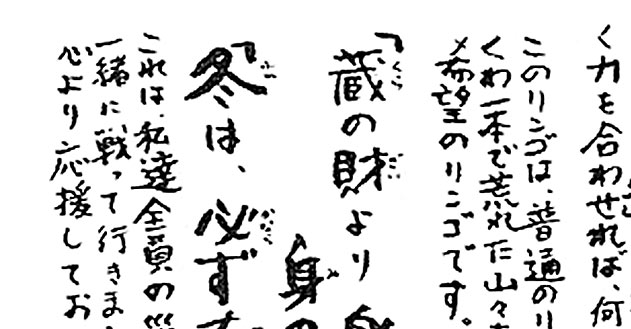 く力を合わせれば、何
このリンゴは、普通のリ
くわ一本で荒れた山々
〆希望のリンゴです。
「蔵の財より
身の
冬は、必ず
これは、私達全員の
一緒に戦って行きま
心より応援してお